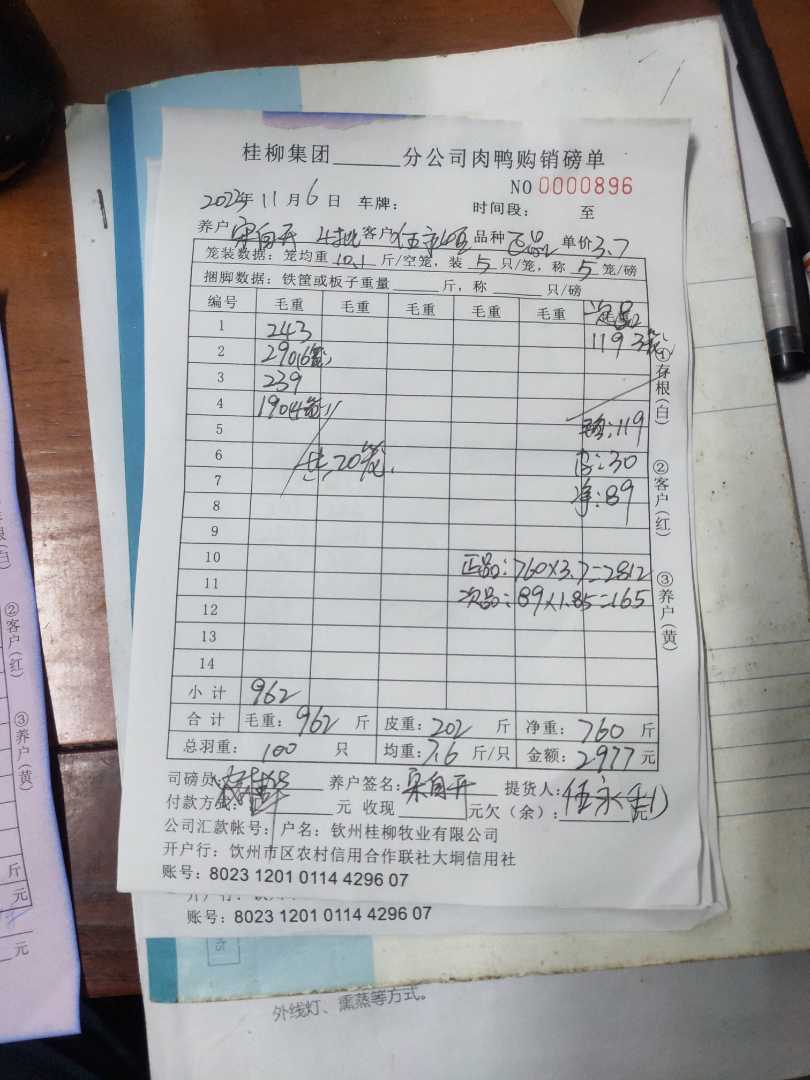 桂柳集团______分公司肉鸭购销磅单
NO 0000896
2022年 11 月 6 日 车牌： 时间段： 至
养户 宋自开 4批 客户 品种 单价 3.7
笼装数据：笼均重 10.1 斤/空笼，装 5 只/笼，称 5 笼/磅
捆脚数据：铁筐或板子重量____斤，称____只/磅
编号 毛重 毛重 毛重 毛重 毛重 次品
1 243 119 3笼
2 290(6笼)
3 239
4 190(4笼)
5 毛:119
6 共20笼. 皮:30
7 净:89
8
9
10 正品:760×3.7=2812
11 次品:89×1.85=165
12
13
14
小计 962
合计 毛重：962 斤 皮重：202 斤 净重：760 斤
总羽重：100 只 均重：7.6 斤/只 金额：2977 元
司磅员 养户签名：宋自开 提货人：
付款方式： 元 收现____元欠（余）：
公司汇款帐号：户名：钦州桂柳牧业有限公司
开户行：饮州市区农村信用合作联社大垌信用社
账号：8023 1201 0114 4296 07
①存根（白）
②客户（红）
③养户（黄）
账号：8023 1201 0114 4296 07
外线灯、熏蒸等方式。
②客户（红）
③养户（黄）
斤
元
元